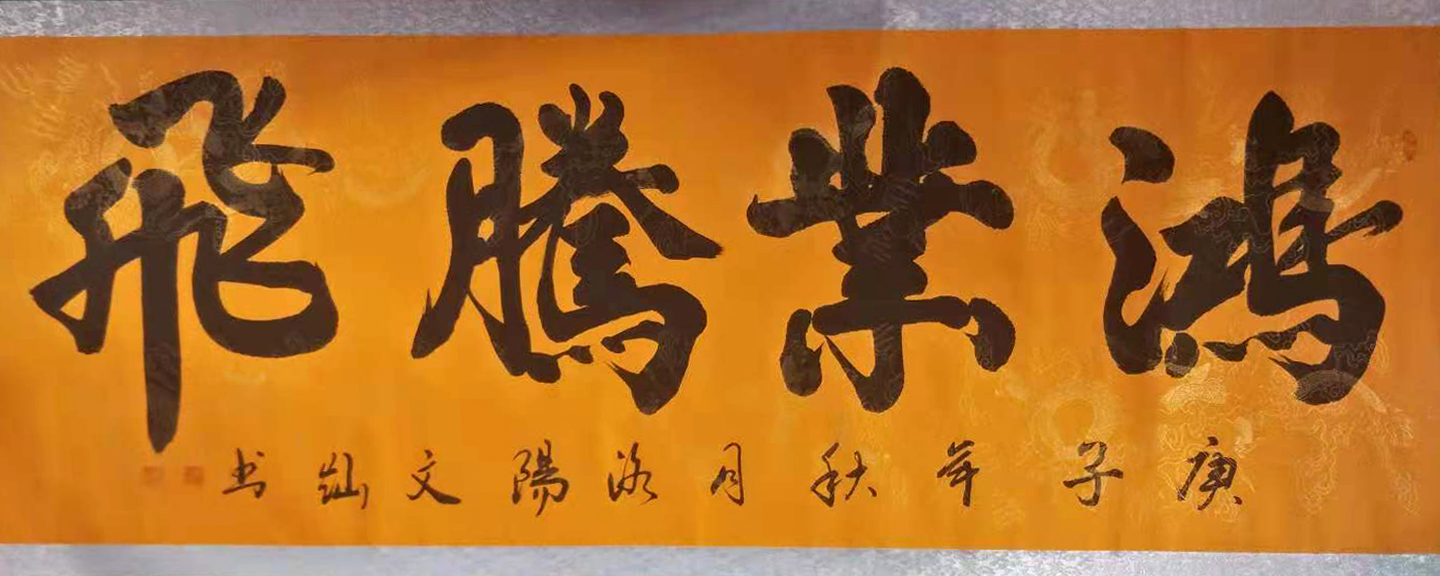 鴻業騰飛
庚子年秋月洛陽文灿书